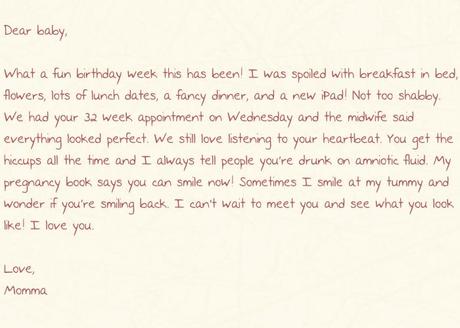 Dear baby,
What a fun birthday week this has been! I was spoiled with breakfast in bed,
flowers, lots of lunch dates, a fancy dinner, and a new iPad! Not too shabby.
We had your 32 week appointment on Wednesday and the midwife said
everything looked perfect. We still love listening to your heartbeat. You get the
hiccups all the time and I always tell people you're drunk on amniotic fluid. My
pregnancy book says you can smile now! Sometimes I smile at my tummy and
wonder if you're smiling back. I can't wait to meet you and see what you look
like! I love you.
Love,
Momma